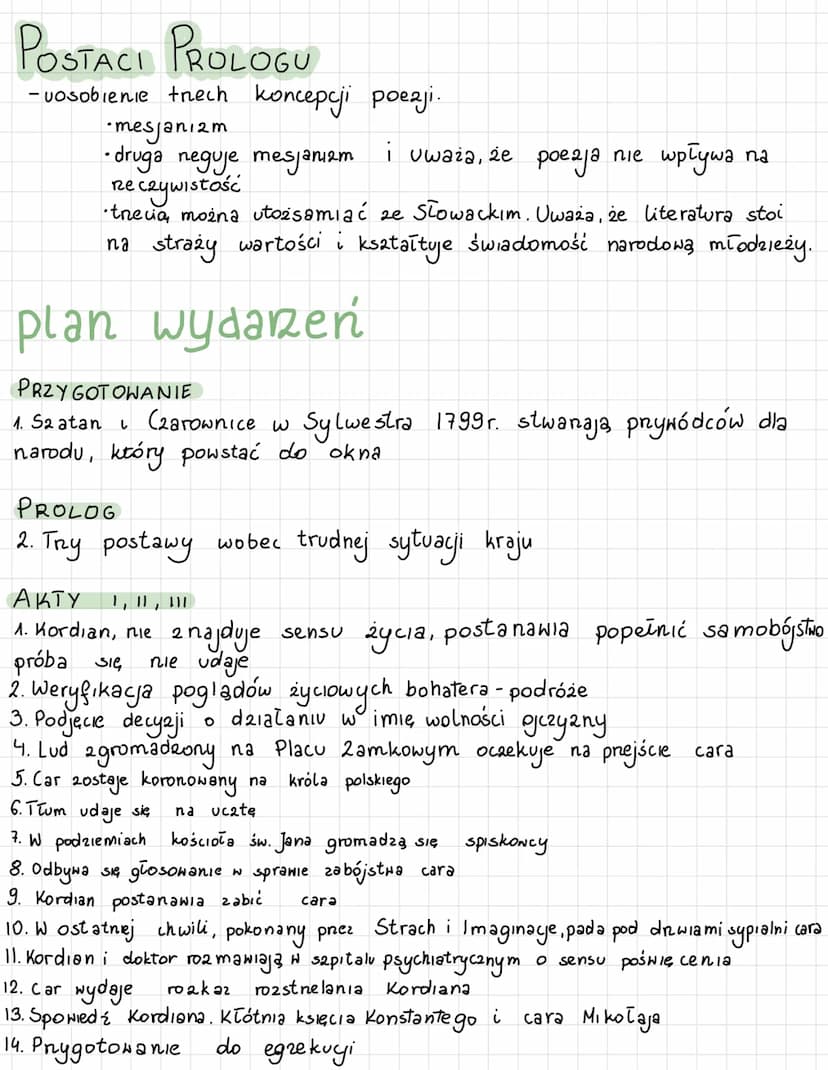 POSTACI PROLOGU
- uosobienie trzech koncepcji poezji.
• mesjanizm
• druga neguje mesjanizm i uważa, że poezja nie wpływa na
rzeczywistość
• trzecią można utożsamiać ze Słowackim. Uważa, że literatura stoi
na straży wartości i kształtuje świadomość narodową młodzieży.
plan wydarzeń
PRZYGOTOWANIE
1. Szatan i Czarownice w Sylwestra 1799r. stwarzają przywódców dla
narodu, który powstać do okna
PROLOG
2. Trzy postawy wobec trudnej sytuacji kraju
AKTY I, II, III
1. Kordian, nie znajduje sensu życia, postanawia popełnić samobójstwo
próba się nie udaje
2. Weryfikacja poglądów życiowych bohatera - podróże
3. Podjęcie decyzji o działaniu w imię wolności ojczyzny
4. Lud zgromadzony na Placu Zamkowym oczekuje na przejście cara
5. Car zostaje koronowany na króla polskiego
6. Tłum udaje się na ucztę
7. W podziemiach kościoła św. Jana gromadzą się spiskowcy
8. Odbywa się głosowanie w sprawie zabójstwa cara
9. Kordian postanawia zabić cara
10. W ostatniej chwili, pokonany przez Strach i Imaginacje, pada pod drzwiami sypialni cara
11. Kordian i doktor rozmawiają w szpitalu psychiatrycznym o sensu poświęcenia
12. Car wydaje rozkaz rozstrzelania Kordiana
13. Spowiedź Kordiana. Kłótnia księcia Konstantego i cara Mikołaja
14. Przygotowanie do egzekucji